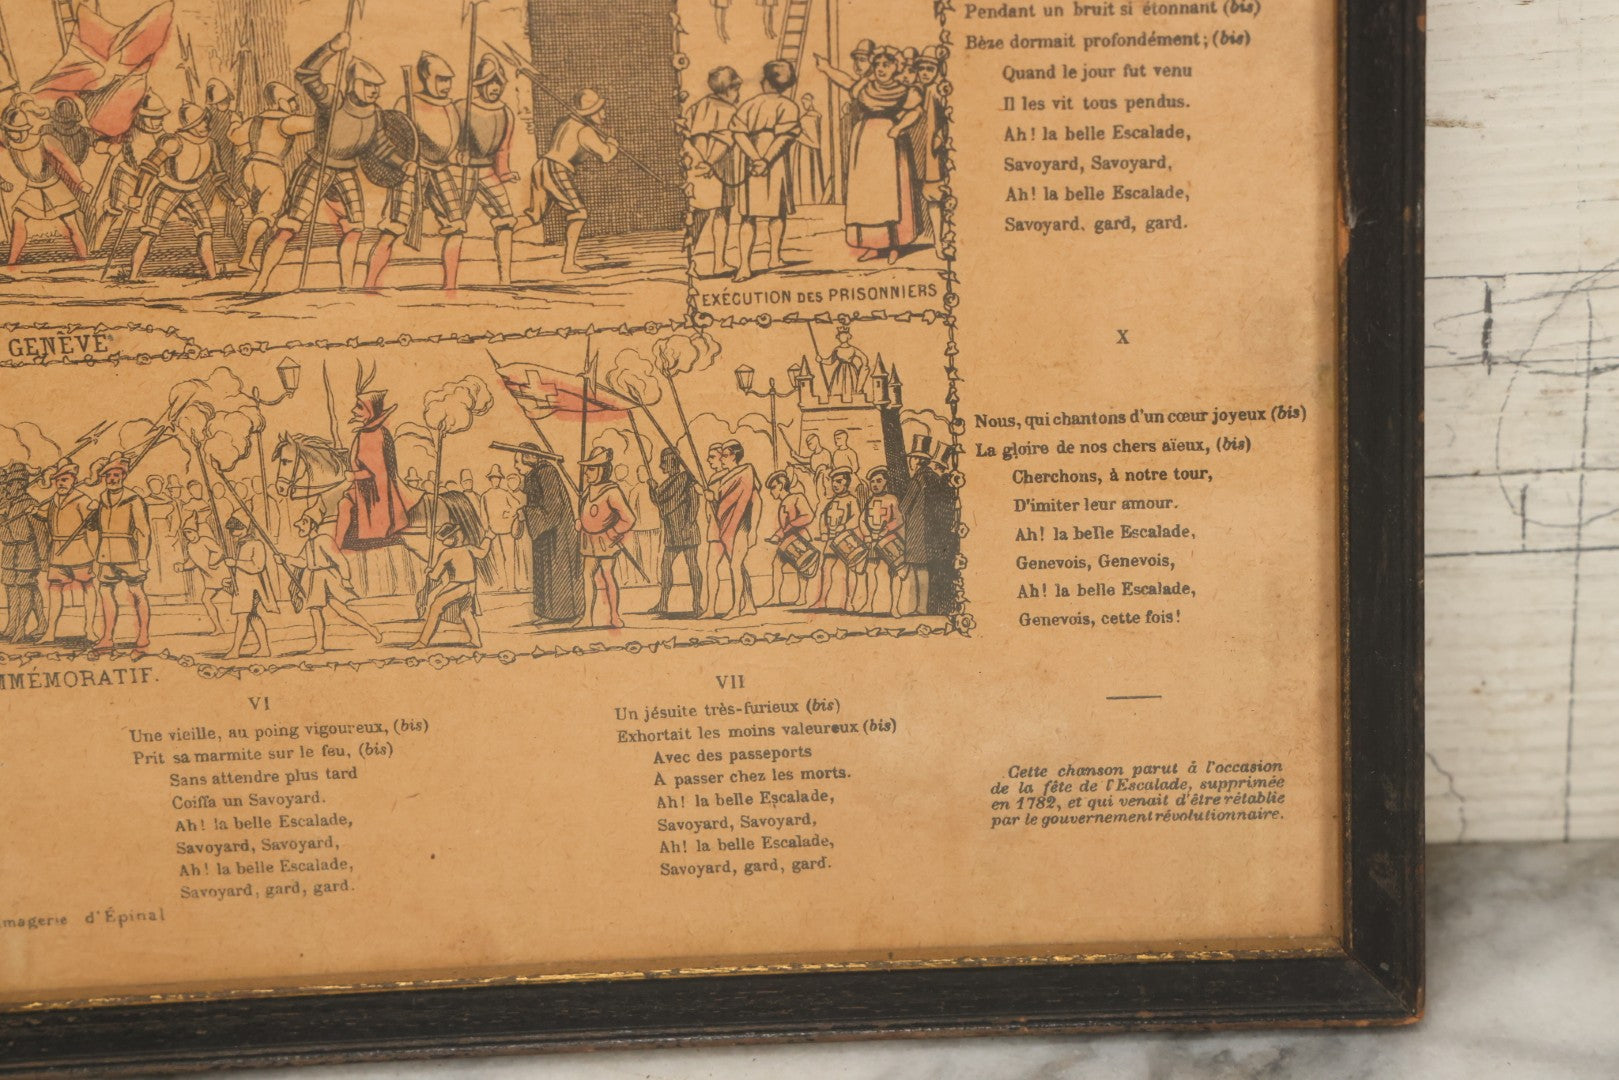 Pendant un bruit si étonnant (bis)
Bèze dormait profondément; (bis)
Quand le jour fut venu
Il les vit tous pendus.
Ah! la belle Escalade,
Savoyard, Savoyard,
Ah! la belle Escalade,
Savoyard. gard, gard.
EXÉCUTION DES PRISONNIERS
GENÈVE
X
Nous, qui chantons d'un cœur joyeux (bis)
La gloire de nos chers aïeux, (bis)
Cherchons, à notre tour,
D'imiter leur amour.
Ah! la belle Escalade,
Genevois, Genevois,
Ah! la belle Escalade,
Genevois, cette fois!
MMÉMORATIF.
VI
Une vieille, au poing vigoureux, (bis)
Prit sa marmite sur le feu, (bis)
Sans attendre plus tard
Coiffa un Savoyard.
Ah! la belle Escalade,
Savoyard, Savoyard,
Ah! la belle Escalade,
Savoyard, gard, gard.
VII
Un jésuite très-furieux (bis)
Exhortait les moins valeureux (bis)
Avec des passeports
A passer chez les morts.
Ah! la belle Escalade,
Savoyard, Savoyard,
Ah! la belle Escalade,
Savoyard, gard, gard.
Cette chanson parut à l'occasion
de la fête de l'Escalade, supprimée
en 1782, et qui venait d'être rétablie
par le gouvernement révolutionnaire.
magerie d'Épinal